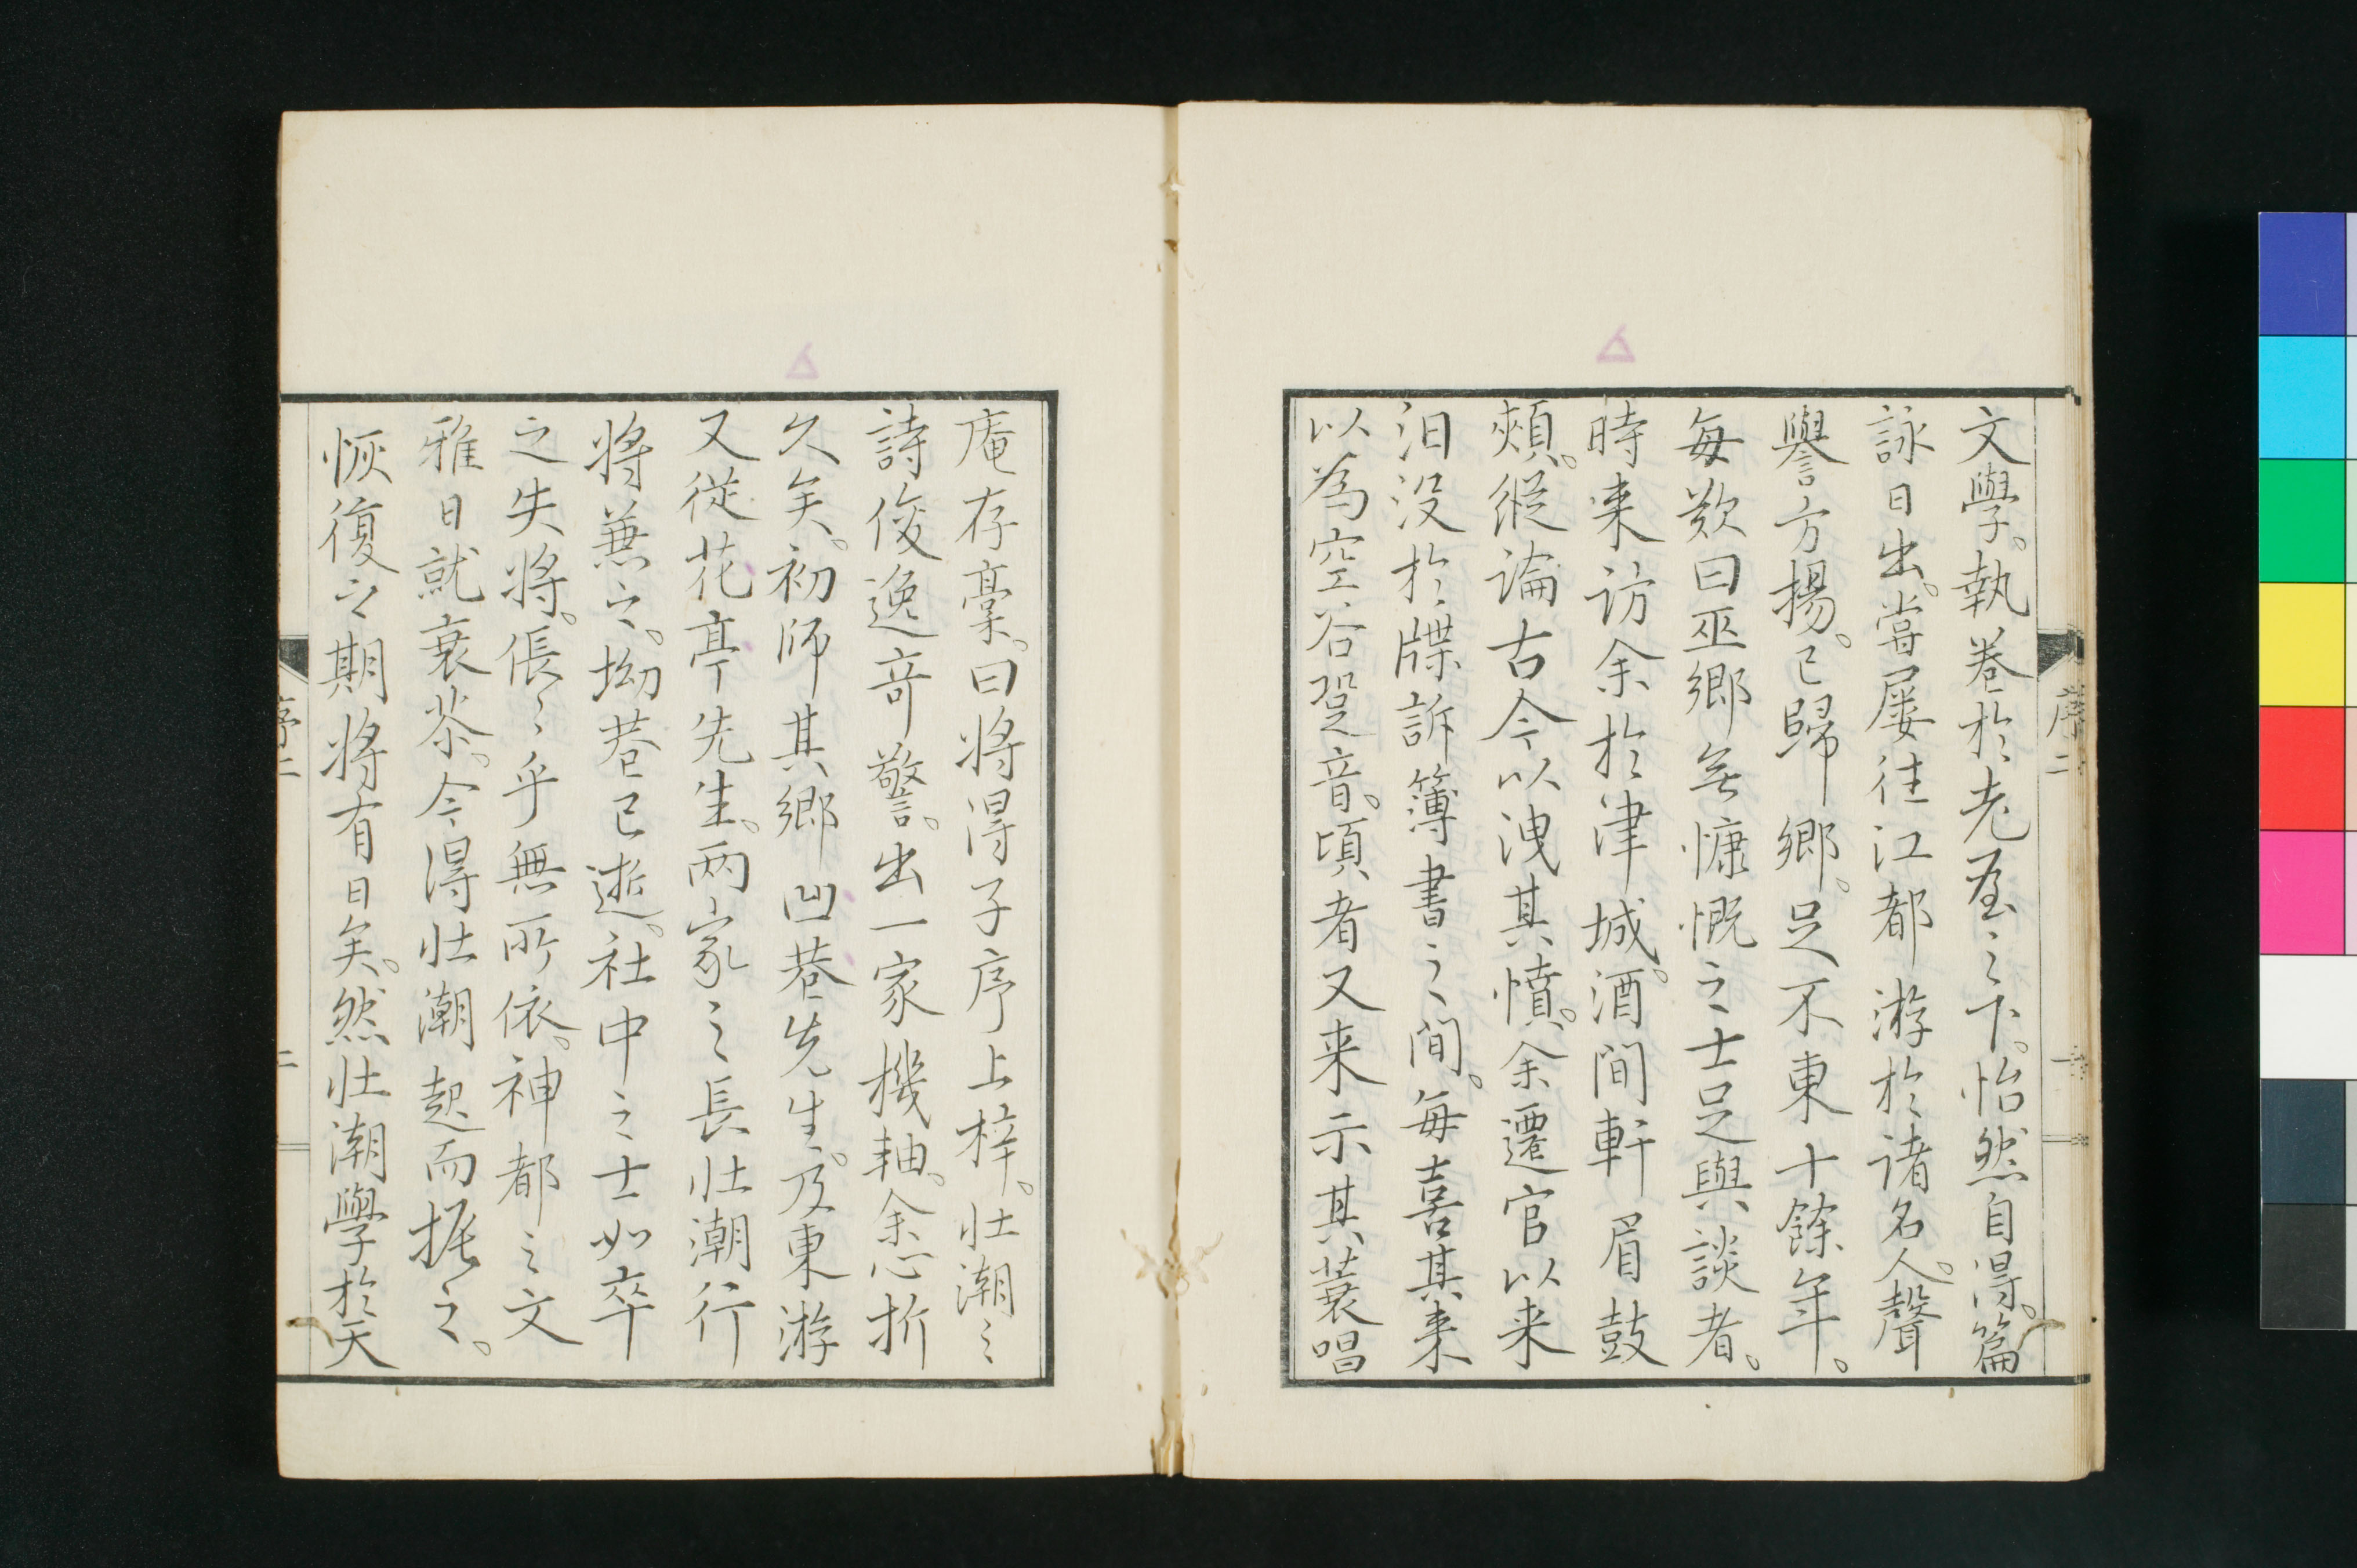 文學。執卷於老𡉏〻下。怡然自得。篇
詠日出。嘗屢往江都游於諸名人。聲
譽方揚。已歸鄉。足不東十餘年。
每歎曰巫鄉無慷慨之士足與談者。
時來訪余於津城。酒間軒眉鼓
頰。縱論古今以洩其憤。余遷官以来
汩没於牒訴簿書之間。每喜其来
以為空谷跫音。頃者又来示其蓑唱
庵存稾。曰將得子序上梓。壯潮〻
詩俊逸奇警。出一家機軸。余心折
久矣。初師其鄉凹巷先生。及東游
又從花亭先生。兩家之長壯潮行
將兼之。坳巷已逝。社中之士如卒
之失將。倀〻乎無所依。神都之文
雅日就衰苶。今得壯潮起而振之。
恢復之期將有日矣。然壯潮學於天
序二
二
序二